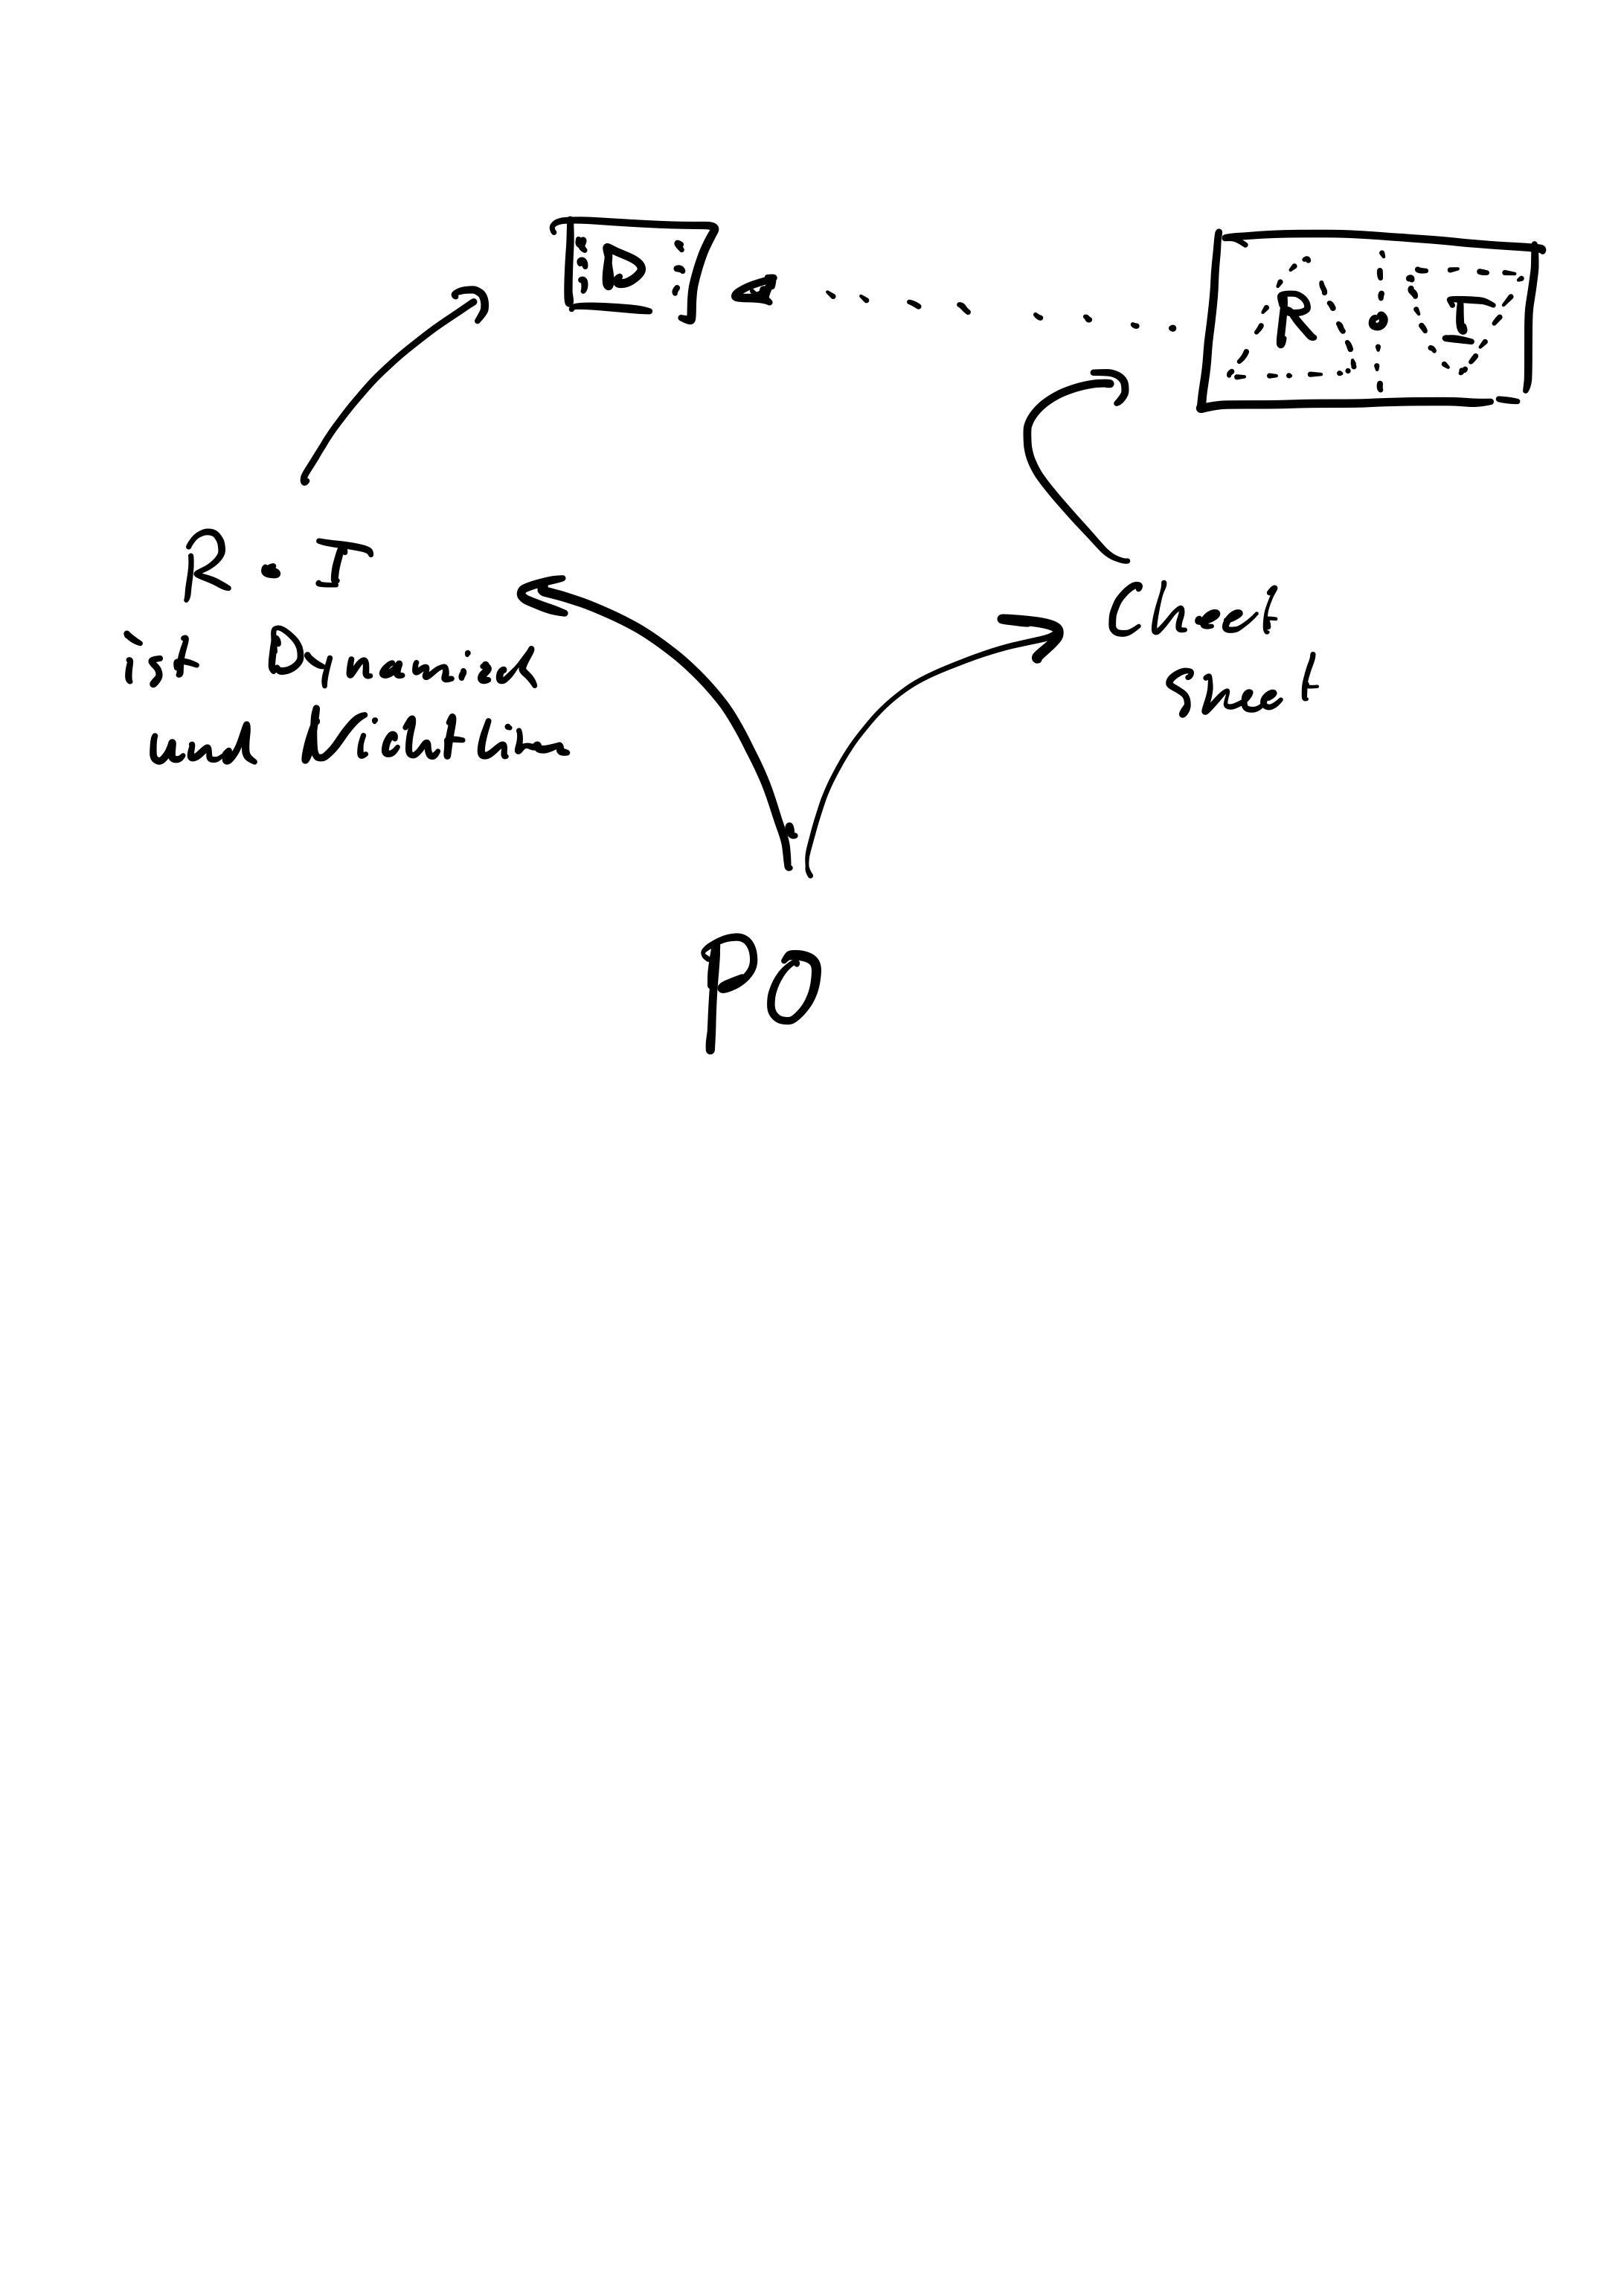 D
R • I
R • I
ist Dynamisch
und Wichtig
Cheat
Sheet
PO